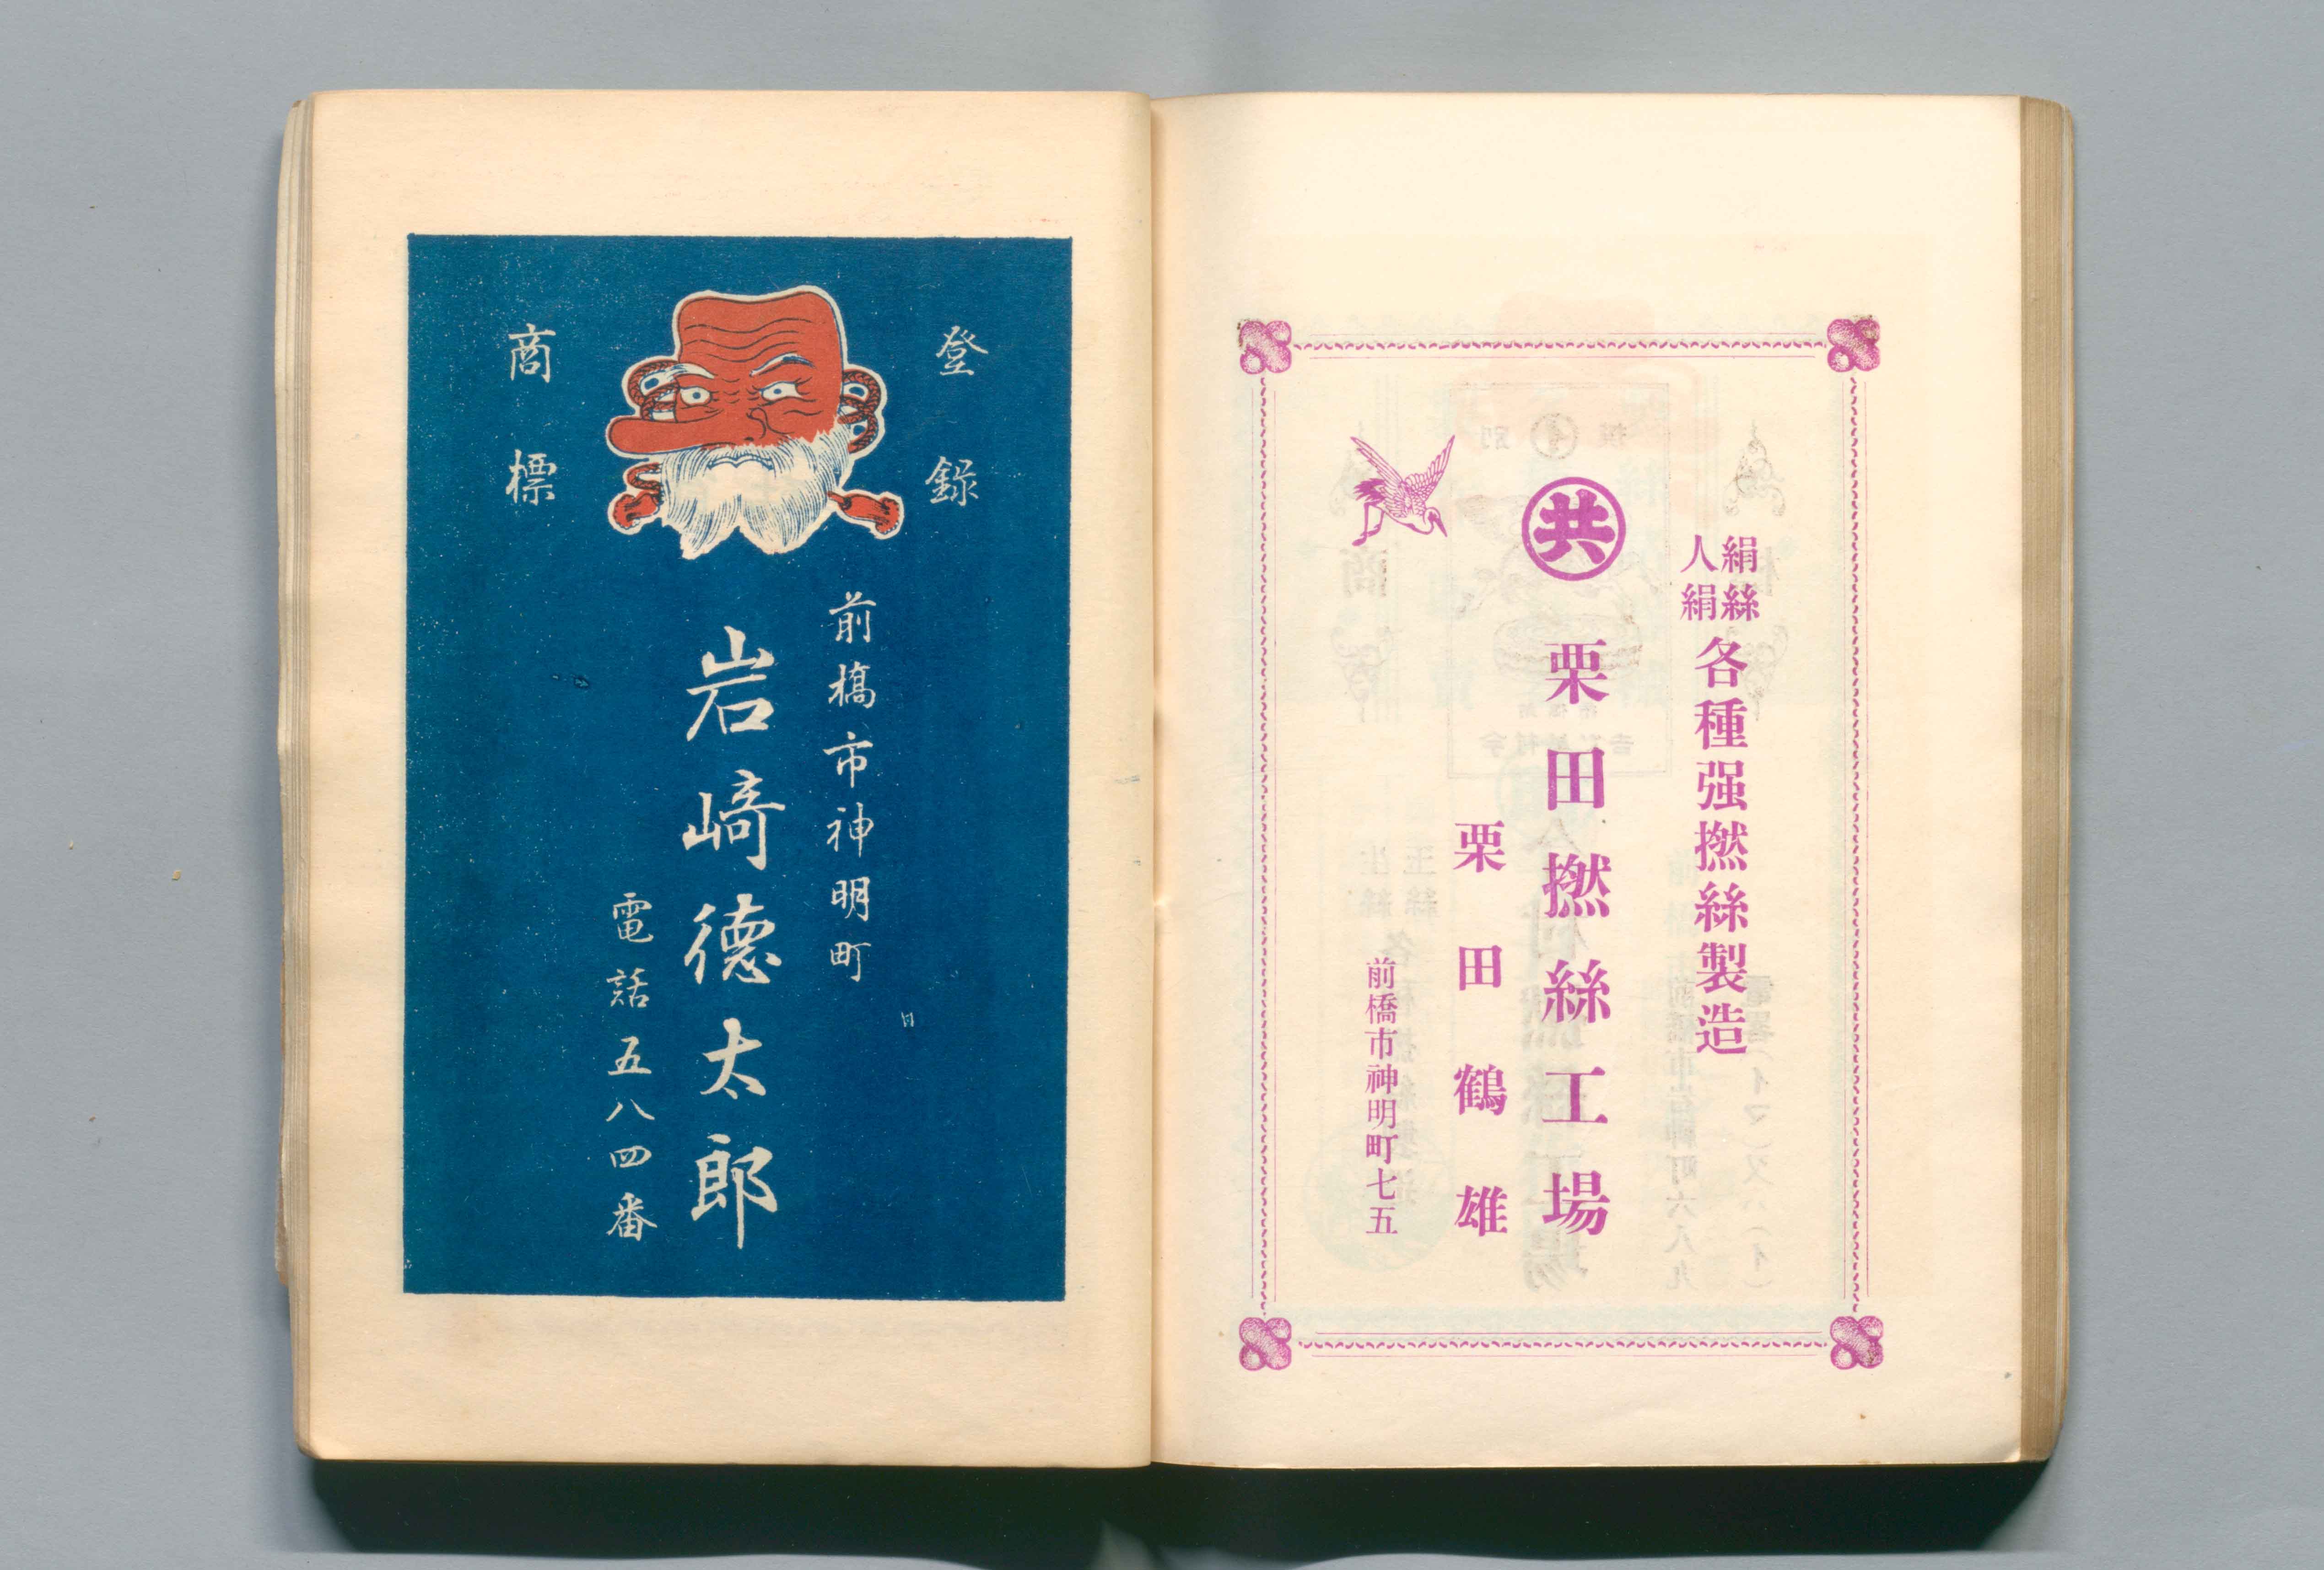 絹絲
人絹
各種强撚絲製造
共
栗田撚絲工場
栗田鶴雄
前橋市神明町七五
登錄
商標
前橋市神明町
岩﨑德太郎
電話五八四番